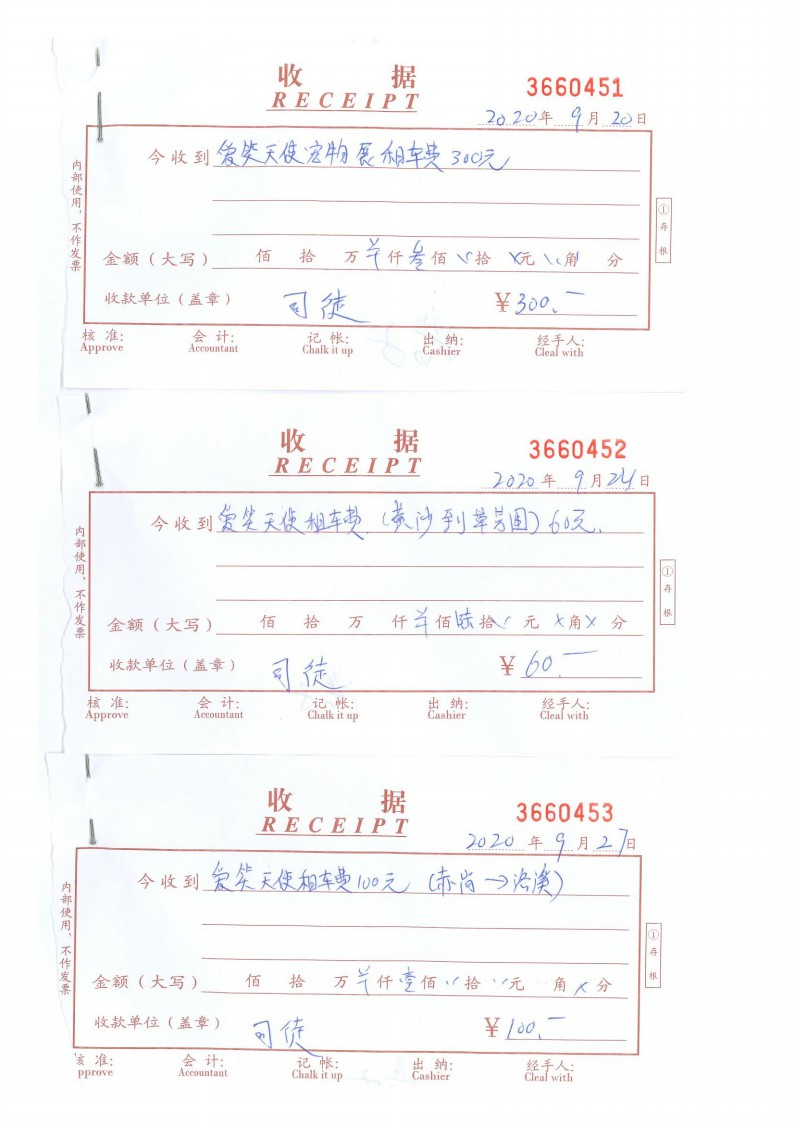 收 据
RECEIPT
3660451
2020年 9月 20日
今收到 爱笑天使宠物展租车费300元
金额（大写） 佰 拾 万 仟叁佰 拾 元 角 分
收款单位（盖章） 司徒 ¥300.—
核 准: 会 计: 记 帐: 出 纳: 经手人:
Approve Accountant Chalk it up Cashier Cleal with
内部使用，不作发票
①存根
收 据
RECEIPT
3660452
2020年 9月24日
今收到 爱笑天使租车费（黄沙到草芳围）60元.
金额（大写） 佰 拾 万 仟 佰陆拾 元 ×角× 分
收款单位（盖章） 司徒 ¥60.—
核 准: 会 计: 记 帐: 出 纳: 经手人:
Approve Accountant Chalk it up Cashier Cleal with
内部使用，不作发票
①存根
收 据
RECEIPT
3660453
2020年 9月27日
今收到 爱笑天使租车费100元 （赤岗→洛溪）
金额（大写） 佰 拾 万 仟壹佰 拾 元 角×分
收款单位（盖章） 司徒 ¥100.—
准: 会 计: 记 帐: 出 纳: 经手人:
pprove Accountant Chalk it up Cashier Cleal with
内部使用，不作发票
①存根